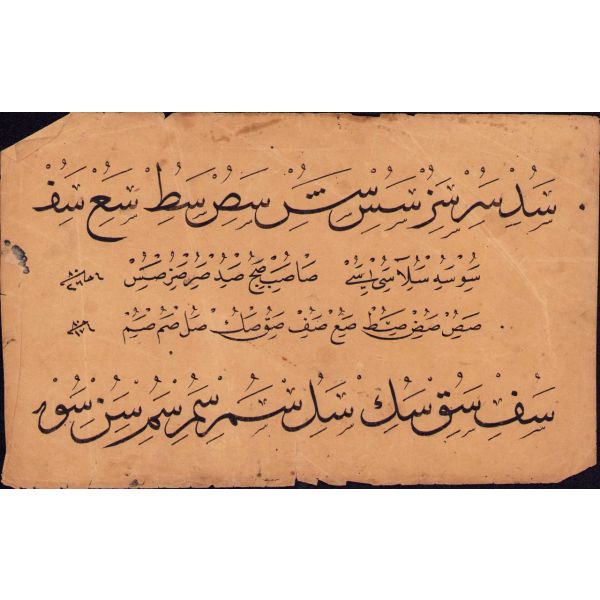 سد سر سز سس سش سص سط سع سف
سو سه سلا سى سے صا صب صح صد صر صز صس
صص صض صط صع صف صق صك صل صم صم
سف سق سك سل سم سم سم سن سو